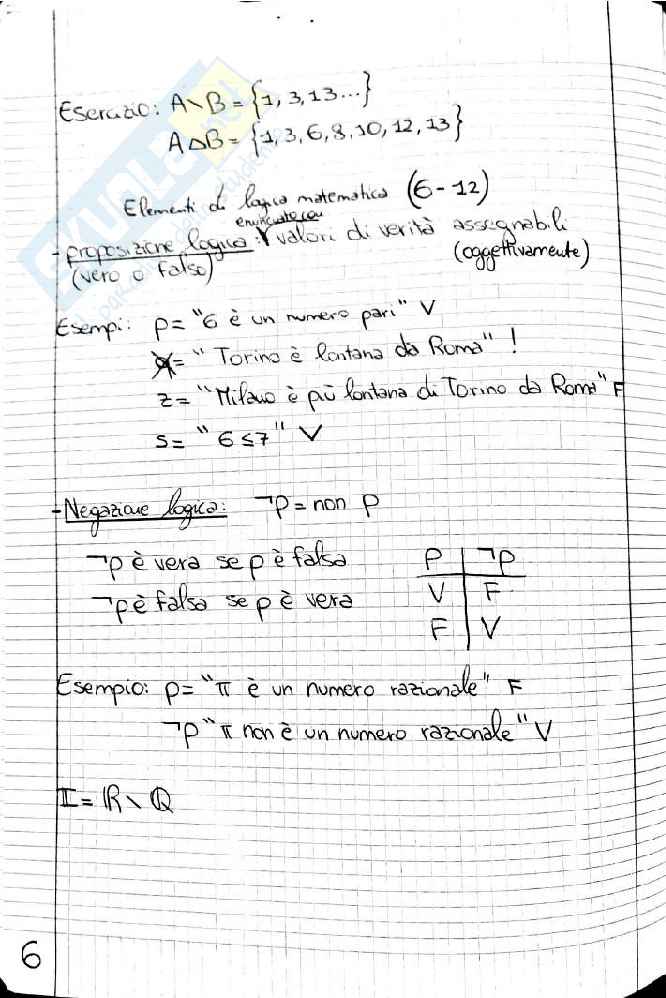 Esercizio: A∖B = {1, 3, 13...}
A△B = {1, 3, 6, 8, 10, 12, 13}
Elementi di logica matematica (6-12)
enunciate con
- proposizione logica: valori di verità assegnabili
(vero o falso) (oggettivamente)
Esempi: p = "6 è un numero pari" V
= "Torino è lontana da Roma" !
z = "Milano è più lontana di Torino da Roma" F
s = "6 ≤ 7" V
- Negazione logica: ¬p = non p
¬p è vera se p è falsa P | ¬p
¬p è falsa se p è vera V | F
F | V
Esempio: p = "π è un numero razionale" F
¬p "π non è un numero razionale" V
I = ℝ∖ℚ
6